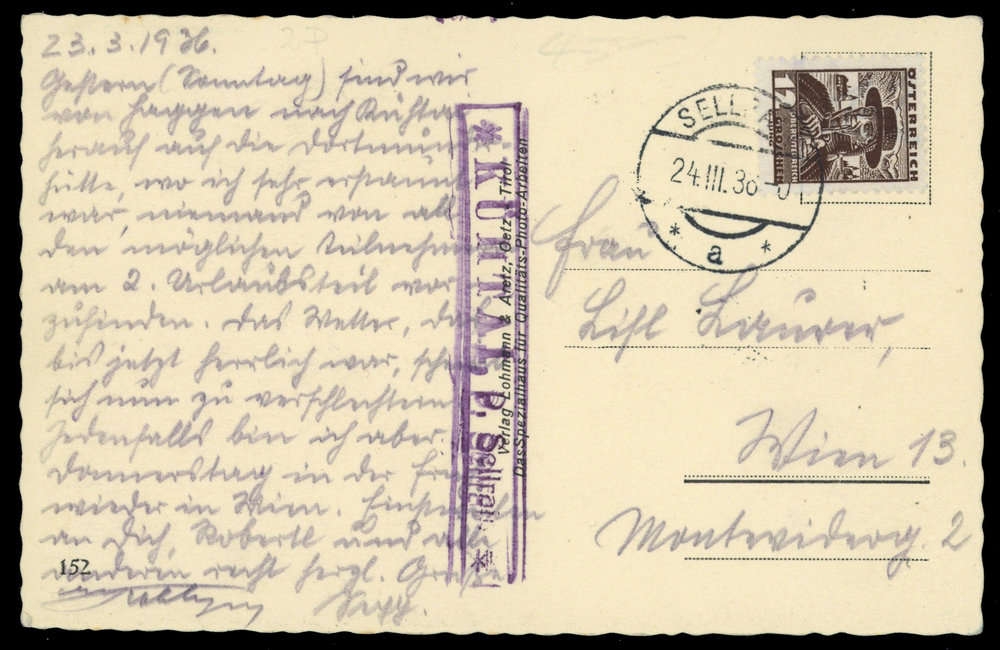 23.3.1936.
Gestern (Sonntag) sind wir
von Haggen nach Kühtai
herauf auf die Dortmunder-
hütte, wo ich sehr erstaunt
war, niemand von all
den möglichen Teilnehmern
am 2. Urlaubsteil vor
zufinden. Das Wetter, das
bis jetzt herrlich war, scheint
sich nun zu verschlechtern
Jedenfalls bin ich aber
Donnerstag in der Früh
wieder in Wien. Einstweilen
an Dich, Robertl und alle
anderen recht herzl. Grüße
Sepp.
152
* KÜHTAI P. Sellrain *
Verlag Lohmann & Aretz, Oetz, Tirol
Das Spezialhaus für Qualitäts-Photo-Arbeiten
SELLRA
24.III.36
* a *
12
ÖSTERREICH
GROSCHEN
OBERÖSTERREICH
Frau
Lisl Laurer,
Wien 13.
Montevideog. 2